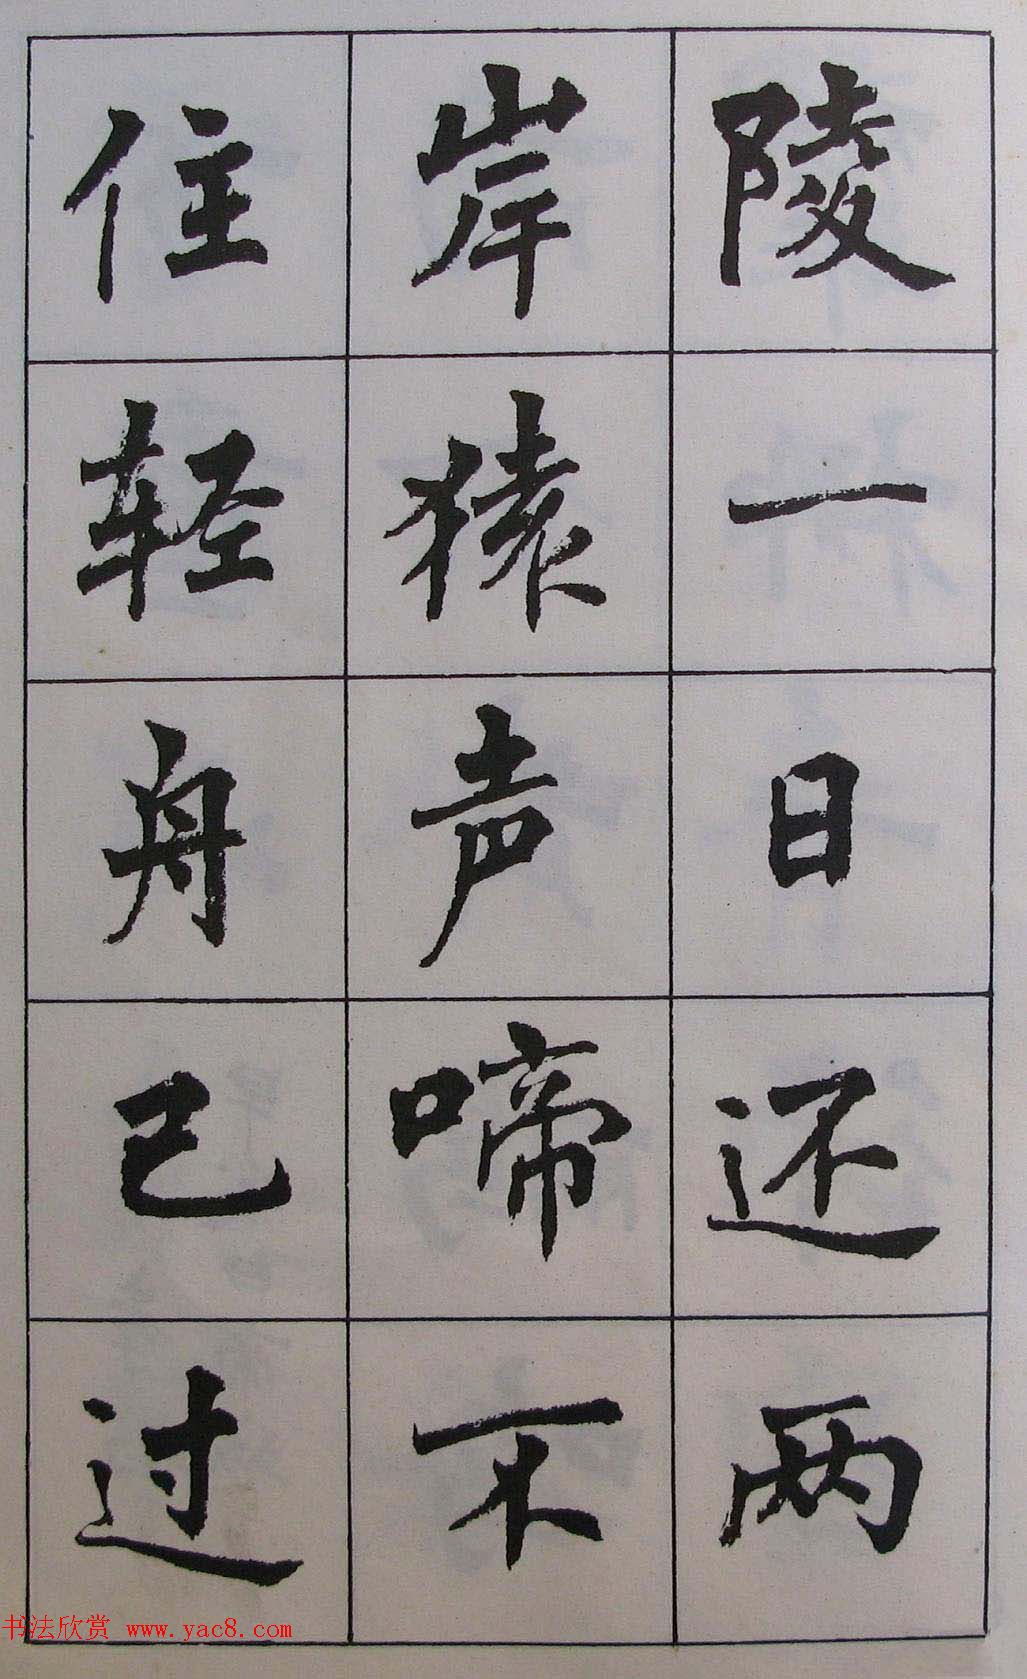 陵一日还两
岸猿声啼不
住轻舟已过
书法欣赏 www.yac8.com